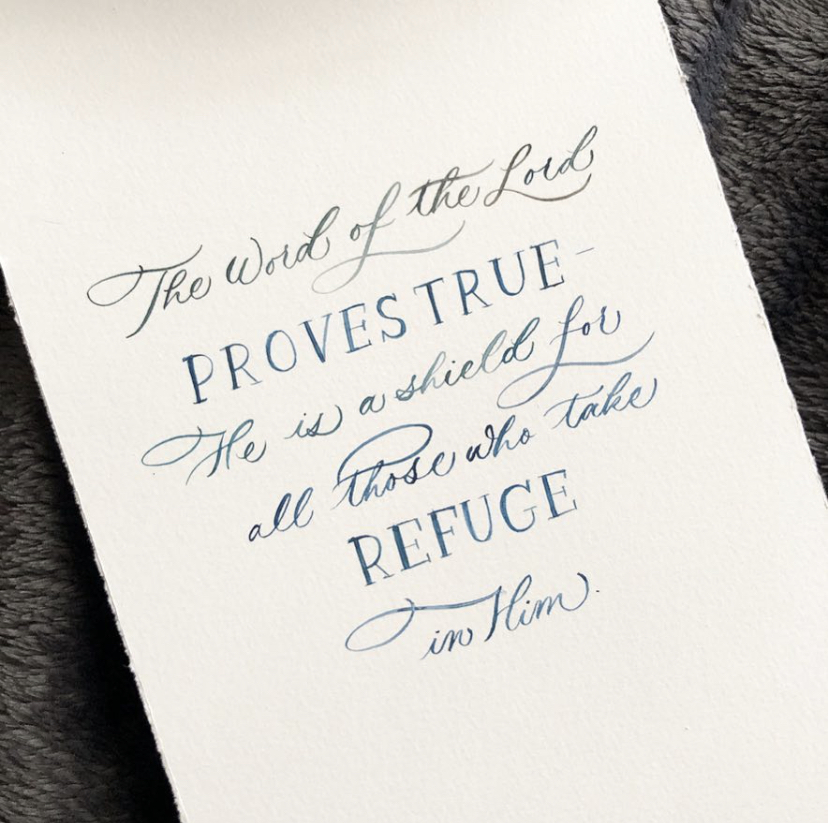 The Word of the Lord
PROVES TRUE-
He is a shield for
all those who take
REFUGE
in Him.